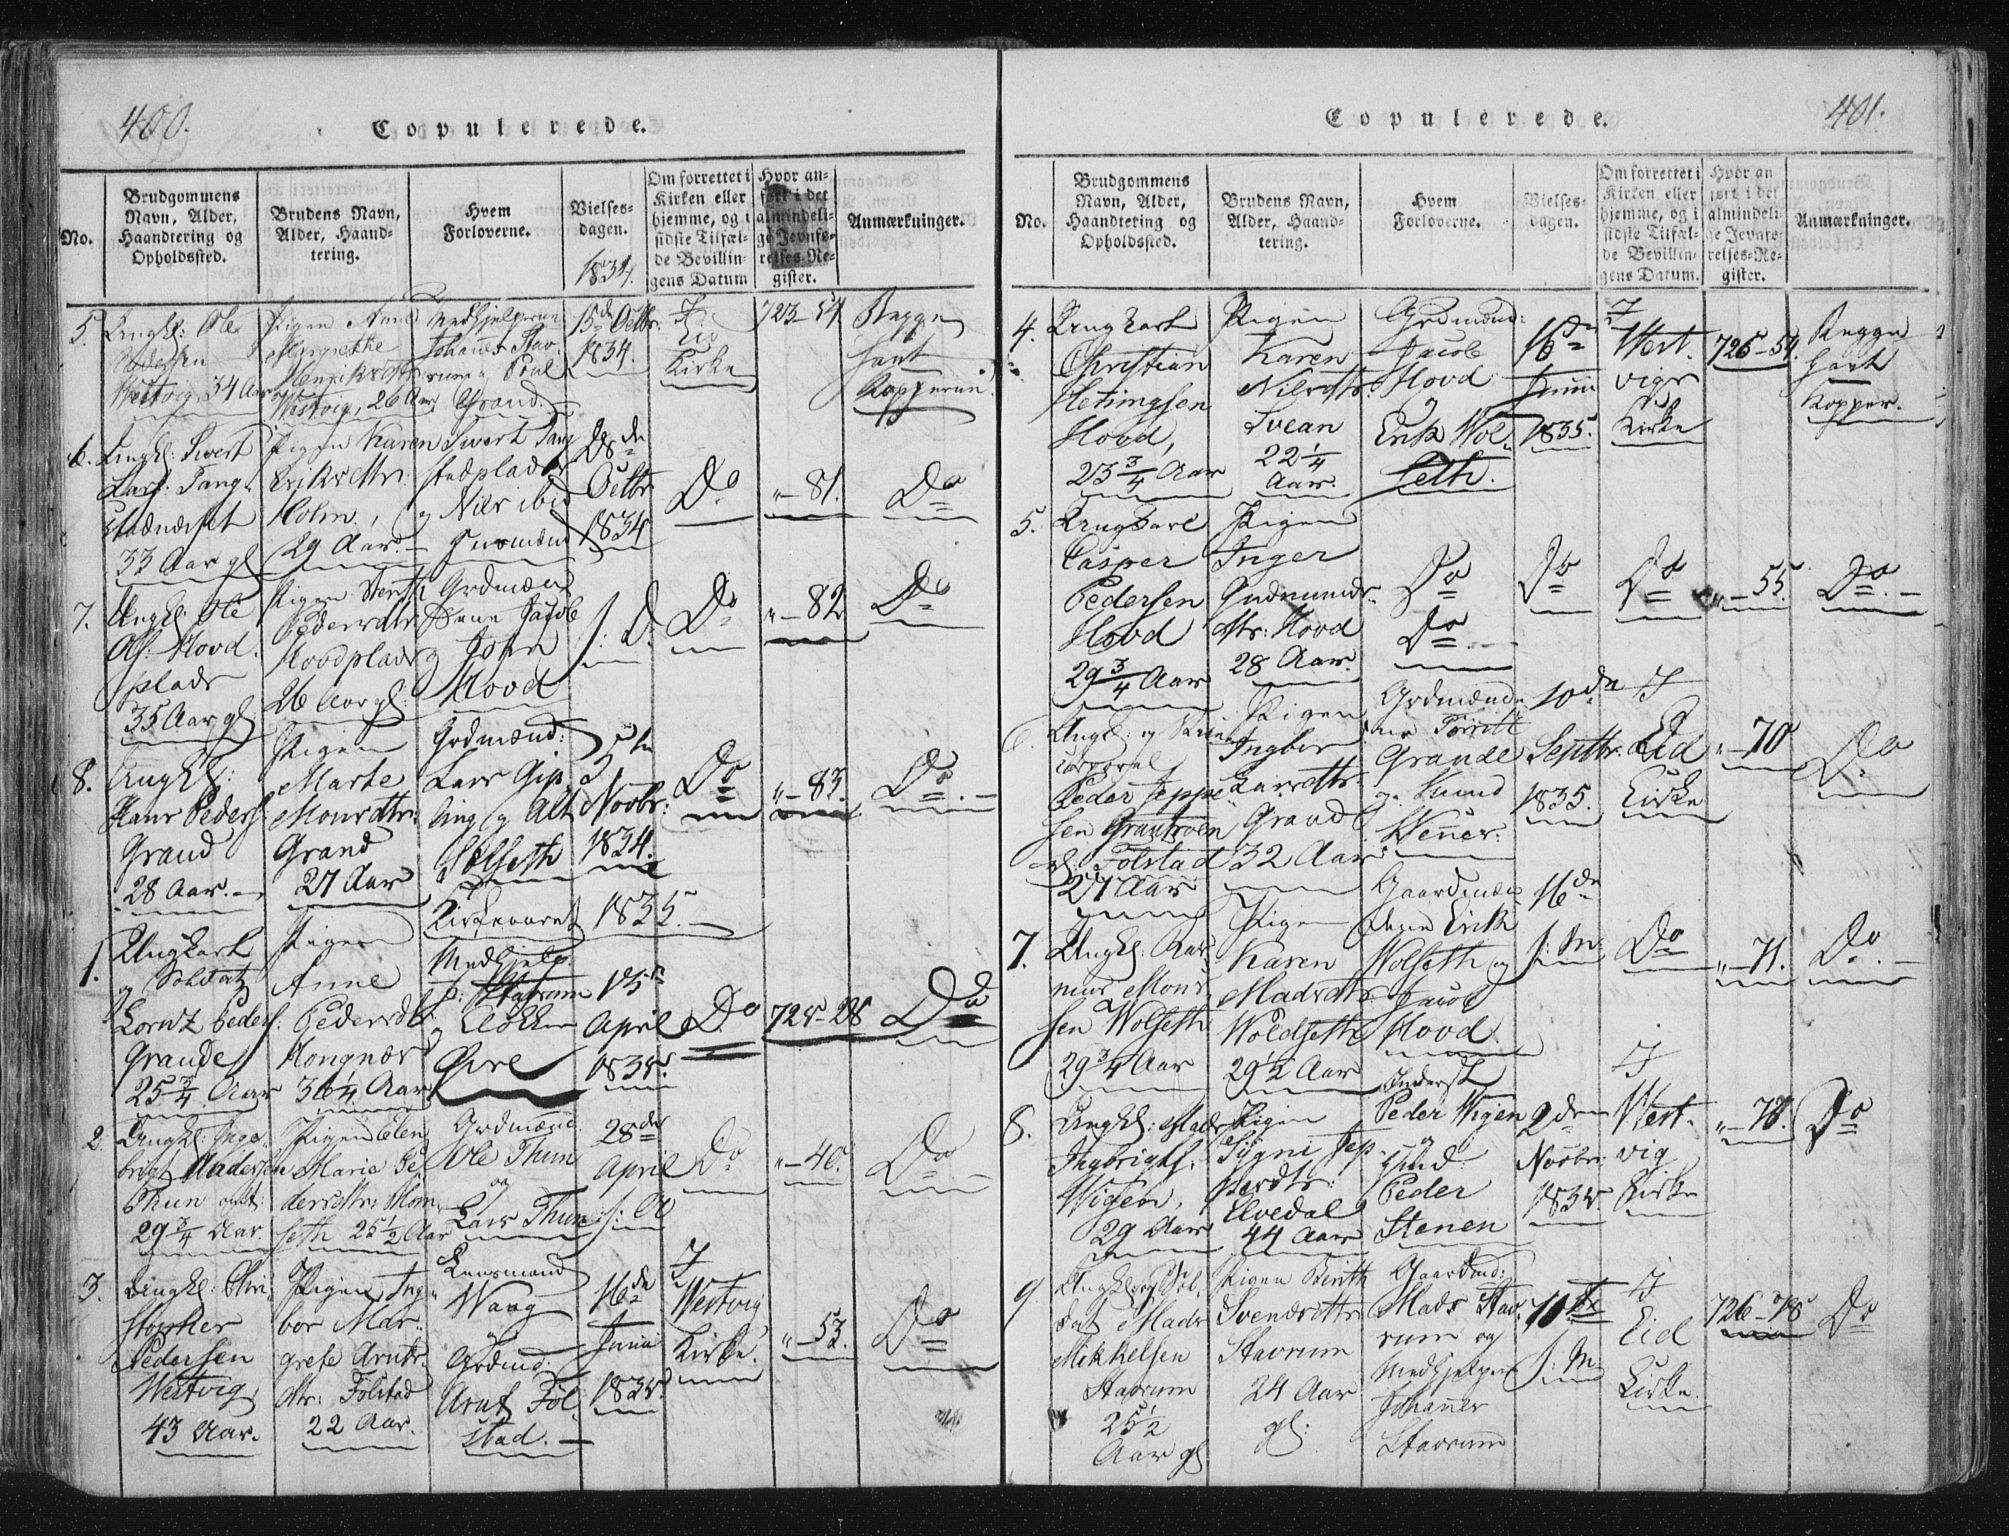 400.
Copulerede.
No.
Brudgommens
Navn, Alder,
Haandtering og
Opholdssted.
Brudens Navn,
Alder, Haand-
tering.
Hvem
Forloverne.
Vielses-
dagen.
1834.
Om forrettet i
Kirken eller
hjemme, og i
sidste Tilfæl-
de Bevillin-
gens Datum
Hvor an-
ført i det
almindeli-
ge Jevnfø-
relses-Re-
gister.
Anmærkninger.
5.
Ungkl: Ole
Westvig 34 Aar
Pigen Anne
Margrethe
Henriksdtr
Westvig, 26 Aar
Medhjelperne
Johannes Stav-
rum Poul
Grand.
15de Octbr:
1834.
I
Kirke
723-54
Begge
havt
Kopperne.
6.
Ungkl: Siwert
Lars: Tang-
33 Aar gl
Pigen Karen
Eriksdtr:
Holm,
29 Aar.
Siwert Tang
stadplads
og Niels ibid
Huusmænd
28de
Octbr
1834
Do
"-81.
Do
7.
Ungkl: Ole
Ols: Hovd-
plads
35 Aar gl
Pigen Berith
Pedersdtr
Hovdplads
26 Aar gl:
Grdmæn-
dene Jacob
og John
Hovd
s: D.
Do
"-82
Do
8.
Ungkl:
Hans Peders:
Grand
28 Aar.
Pigen
Marte
Monsdtr:
Grand
27 Aar
Grdmænd:
Lars Gip-
ling og Alt
Solseth
5te
Novbr:
1834.
Do
"-83.
Do.
Kirkeaaret 1835.
1.
Ungkarl
og Soldat
Lorntz Peders:
Grande
25 3/4 Aar
Pigen
Anne
Pedersdtr:
Hongnæs
36 1/4 Aar
Medhjelp:
Stavrum
og Clokker
Gire
15de
April
1835.
Do
725-28
Do
2.
Ungkl: Inge-
brigt Andersen
Thun
29 3/4 Aar
Pigen Elen
Marie Pe-
dersdtr:
seth 25 1/2 Aar
Grdmænd:
Ole Thun
og
Lars Thun
28de
April
s: A
Do
"-40.
Do
3.
Ungkl: Chri-
stopher
Pedersen
Westvig
43 Aar.
Pigen Ing-
bor Mar-
grete Arnts-
dtr: Folstad
22 Aar.
Lensmand
Waag
og
Grdmd:
Arnt Fol-
stad.
16de
Junii
1835.
I
Westvig
Kirke.
"-53.
Do
401.
Copulerede.
No.
Brudgommens
Navn, Alder,
Haandtering og
Opholdssted.
Brudens Navn,
Alder, Haand-
tering.
Hvem
Forloverne.
Vielses-
dagen.
Om forrettet i
Kirken eller
hjemme, og i
sidste Tilfæl-
de Bevillin-
gens Datum.
Hvor an
ført i det
almindeli-
ge Jevnfø-
relses-Re-
gister.
Anmærkninger.
4.
Ungkarl
Christian
Hemingsen
Hovd,
23 3/4 Aar
Pigen
Karen
Nilsdtr:
Svean
22 1/4
Aar.
Grdmænd:
Jacob
Hovd
og
Erik Wol-
seth.
16de
Junii
1835.
I
West-
vigs
Kirke
725-54.
Begge
havt
Kopper.
5.
Ungkarl
Casper
Pedersen
Hovd
29 3/4 Aar
Pigen
Inger
Gudmunds-
dtr: Hovd
28 Aar.
Do
Do.
Do
Do
"-55.
Do.
6.
Ungkl: og
corporal
Peder Jeppe-
sen
Folstad
27 Aar
Pigen
Ingbor
Larsdtr:
Grand
32 Aar
Grdmænde-
ne
Grande
og Knud
Wener.
10de
Septbr:
1835.
I
Eid
Kirke
"-70
Do
7.
Ungkl: Ras-
mus Mons-
sen Wolseth
29 3/4 Aar
Pigen
Karen
Madsdtr:
Woldseth
29 1/2 Aar
Gaardmæn-
dene Erik
Wolseth og
Jacob
Hovd
16de
s: M:
Do
"-71.
Do.
8.
Ungkl: Mads
Ingbrigts:
Wigen,
29 Aar
Pigen
Signi Jep-
persdtr:
Elvedal
44 Aar
Inderst
Peder Wigen
og
Peder
Stenen
2den
Novbr:
1835.
I
West-
vig
Kirke
"-78.
Do
9
Ungkl og Sol-
dat Mads
Mikkelsen
Stavrum
25 1/2
Aar gl
Pigen Berith
Svendsdtr
Stavrum
24 Aar
gl:
Gaardmd:
Mads Stav-
rum og
Medhjelper
Johannes
Stavrum
10de
s: M
I
Eid
Kirke.
726-78
Do